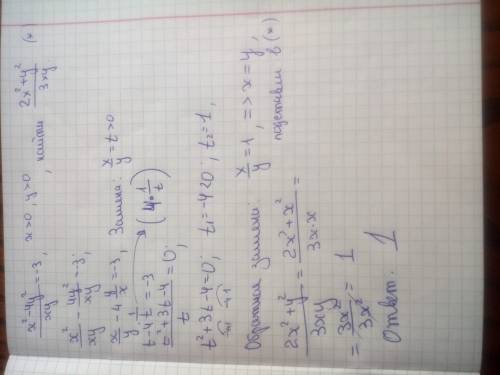 x²-4y²/xy = -3, x>0, y>0, найти 2x²+y²/3xy (*)
x²/xy - 4y²/xy = -3;
x/y - 4 y/x = -3, Замена: x/y = t > 0
t - 4 1/t = -3 (4·1/t)
t²+3t-4/t = 0;
t²+3t-4=0; t₁=-4<0; t₂=1,
Обратная замена: x/y = 1, => x=y,
подставим в (*)
2x²+y²/3xy = 2x²+x²/3x·x =
= 3x²/3x² = 1
Ответ: 1